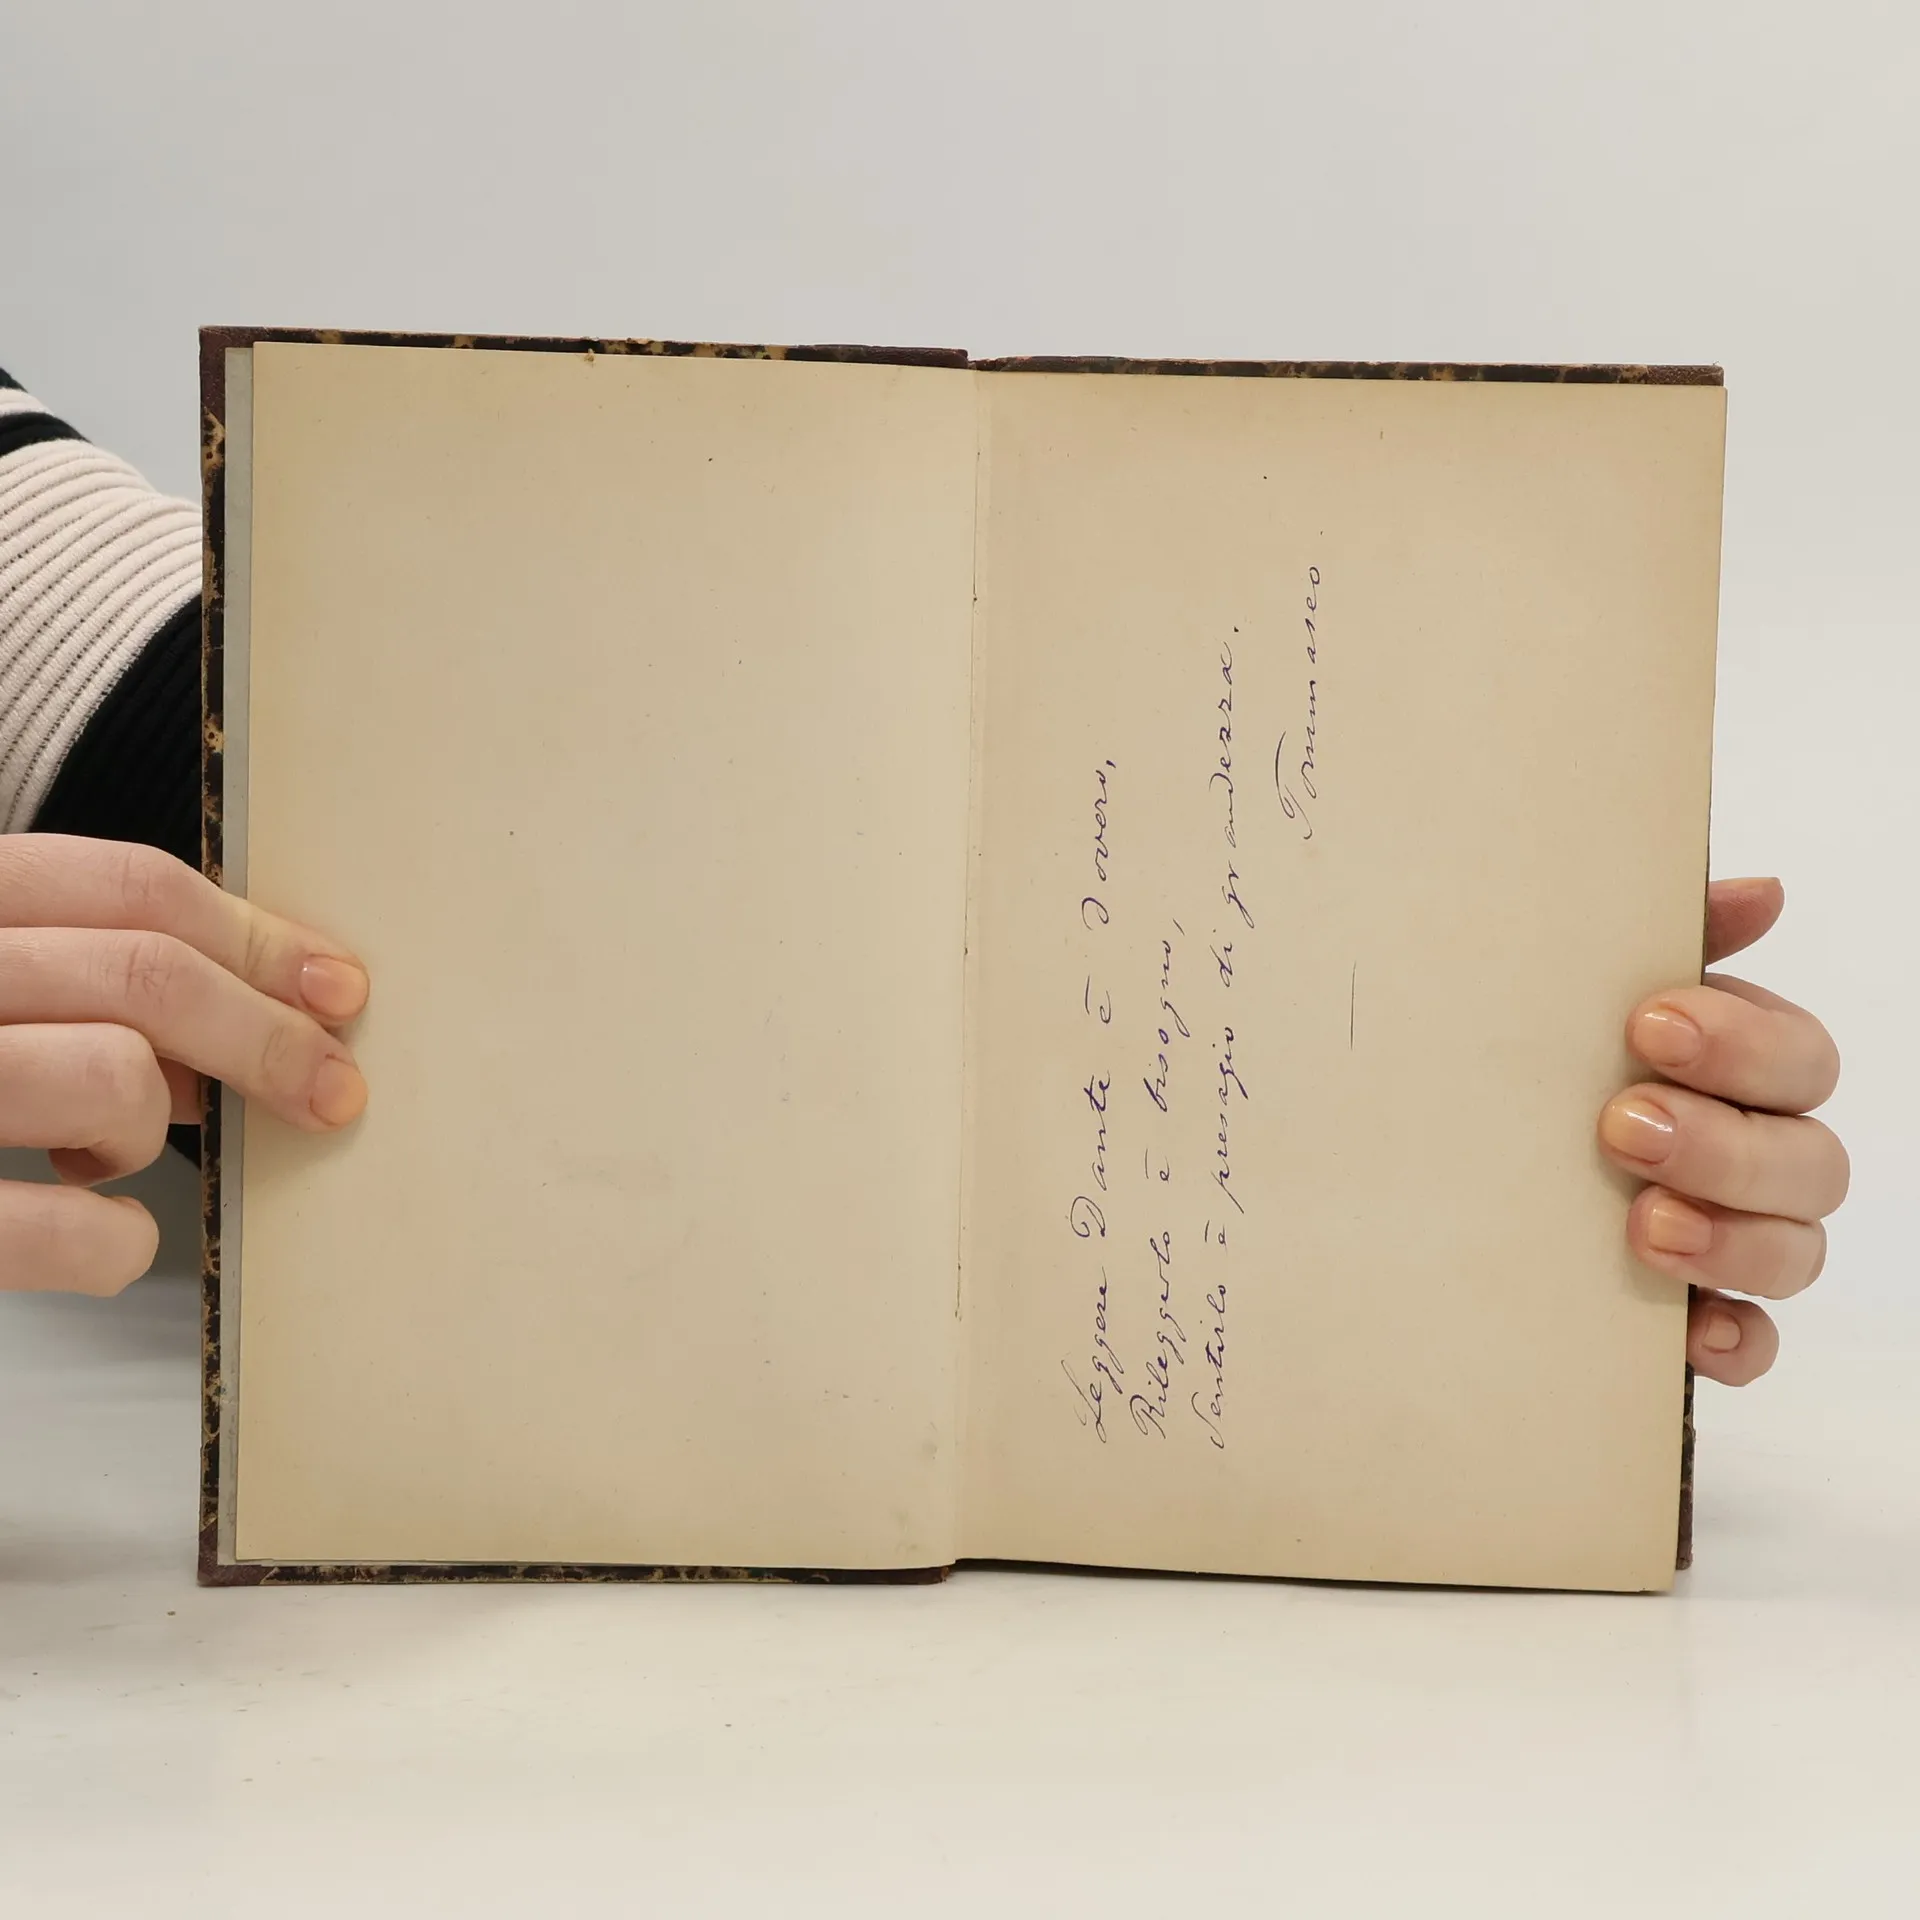 Leggere Dante è dovere,
Rileggerlo è bisogno,
Sentirlo è presagio di grandezza.
Tommaseo.